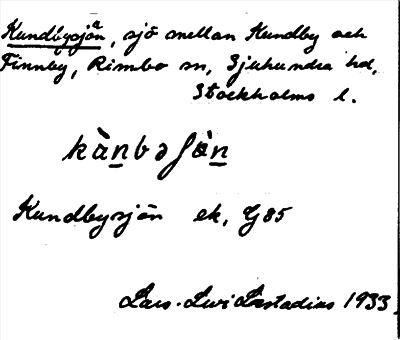 Kundbysjön, sjö mellan Kundby och
Finnby, Rimbo sn, Sjuhundra hd,
Stockholms l.
kànbəʃòn
Kundbysjön ek, G85
Lars-Levi Læstadius 1933.